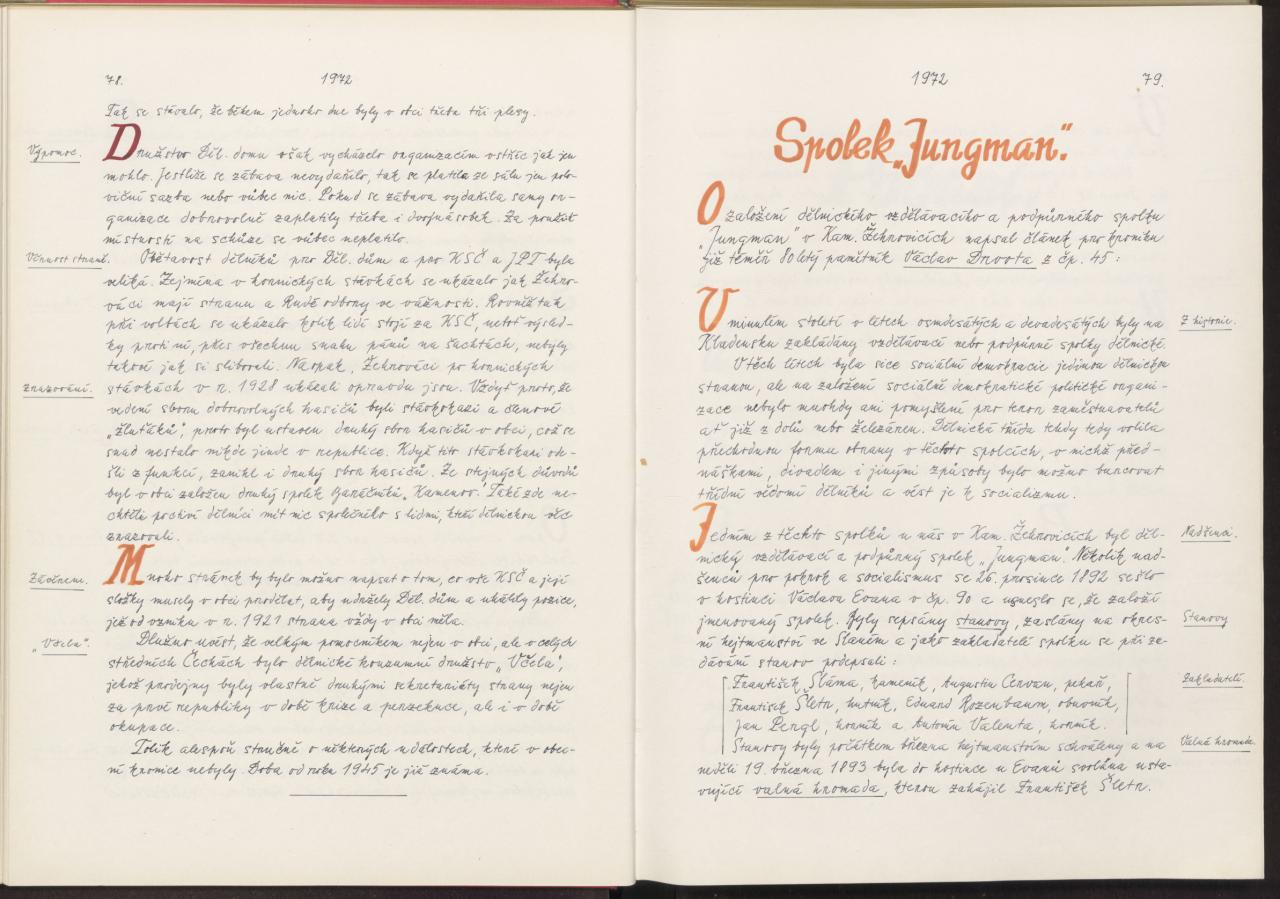 78.
1972
Tak se stávalo, že během jednoho dne byly v obci třeba tři plesy.
Výpomoc.
Družstvo Děl. domu však vycházelo organizacím vstříc jak jen
mohlo. Jestliže se zábava nevydařilo, tak se platila ze sálu jen polo-
viční sazba nebo vůbec nic. Pokud se zábava vydařila samy or-
ganizace dobrovolně zaplatily třeba i dvojnásobek. Za použití
místností na schůze se vůbec neplatilo.
Věrnost straně.
Obětavost dělníků pro Děl. dům a pro KSČ a JPT byla
veliká. Zejména v hornických stávkách se ukázalo jak Žehro-
váci mají stranu a Rudé odbory ve vážnosti. Rovněž tak
při volbách se ukázalo kolik lidí stojí za KSČ, neboť výsled-
ky proti ní, přes všechnu snahu pánů na šachtách, nebyly
takové jak si slibovali. Naopak, Žehrováci po hornických
Znázornění.
stávkách v r. 1928 ukázali opravdu jsou. Vždyť proto, že
vedení sboru dobrovolných hasičů byli stávkokazi a členové
„žluťáků", proto byl ustaven druhý sbor hasičů v obci, což se
snad nestalo nikde jinde v republice. Když tito stávkokazi ode-
šli z funkcí, zanikl i druhý sbor hasičů. Ze stejných důvodů
byl v obci založen druhý spolek baráčníků „Kamenov. Také zde ne-
chtěli poctiví dělníci mít nic společného s lidmi, kteří dělnickou věc
zrazovali.
Závěrem.
Mnoho stránek by bylo možno napsat o tom, co vše KSČ a její
složky musely v obci prodělat, aby udržely Děl. dům a uhájily pozice,
jež od vzniku v r. 1921 strana vždy v obci měla.
„Včela".
Dlužno uvést, že velkým pomocníkem nejen v obci, ale v celých
středních Čechách bylo dělnické konzumní družstvo „Včela",
jehož prodejny byly vlastně druhými sekretariáty strany nejen
za prvé republiky v době krize a perzekuce, ale i v době
okupace.
Tolik alespoň stručně o některých událostech, které v obec-
ní kronice nebyly. Doba od roku 1945 je již známa.
1972
79.
Spolek „Jungman".
O založení dělnického vzdělávacího a podpůrného spolku
„Jungman" v Kam. Žehrovicích napsal článek pro kroniku
již téměř 80letý pamětník Václav Drvota z čp. 45:
Z historie.
V minulém století v létech osmdesátých a devadesátých byly na
Kladensku zakládány vzdělávací nebo podpůrné spolky dělnické.
V těch létech byla sice sociální demokracie jedinou dělnickou
stranou, ale na založení sociálně demokratické politické organi-
zace nebylo mnohdy ani pomyšlení pro teror zaměstnavatelů
ať již z dolů nebo železáren. Dělnická třída tehdy tedy volila
přechodnou formu obrany v těchto spolcích, v nichž před-
náškami, divadlem i jinými způsoby bylo možno burcovat
třídní vědomí dělníků a vést je k socializmu.
Nadšenci.
Jedním z těchto spolků u nás v Kam. Žehrovicích byl děl-
nický vzdělávací a podpůrný spolek „Jungman". Několik nad-
šenců pro pokrok a socialismus se 26. prosince 1892 sešlo
v hostinci Václava Evana v čp. 90 a usneslo se, že založí
Stanovy
jmenovaný spolek. Byly sepsány stanovy, zaslány na okres-
ní hejtmanství ve Slaném a jako zakladatelé spolku se při ze-
dávání stanov podepsali:
Zakladatelé.
František Sláma, kameník, Augustin Cerván, pekař,
František Šletr, hutník, Eduard Rozenbaum, obuvník,
Jan Pergl, horník a Antonín Valenta, horník.
Valná hromada.
Stanovy byly počátkem března hejtmanstvím schváleny a na
neděli 19. března 1893 byla do hostince u Evanů svolána usta-
vující valná hromada, kterou zahájil František Šletr.